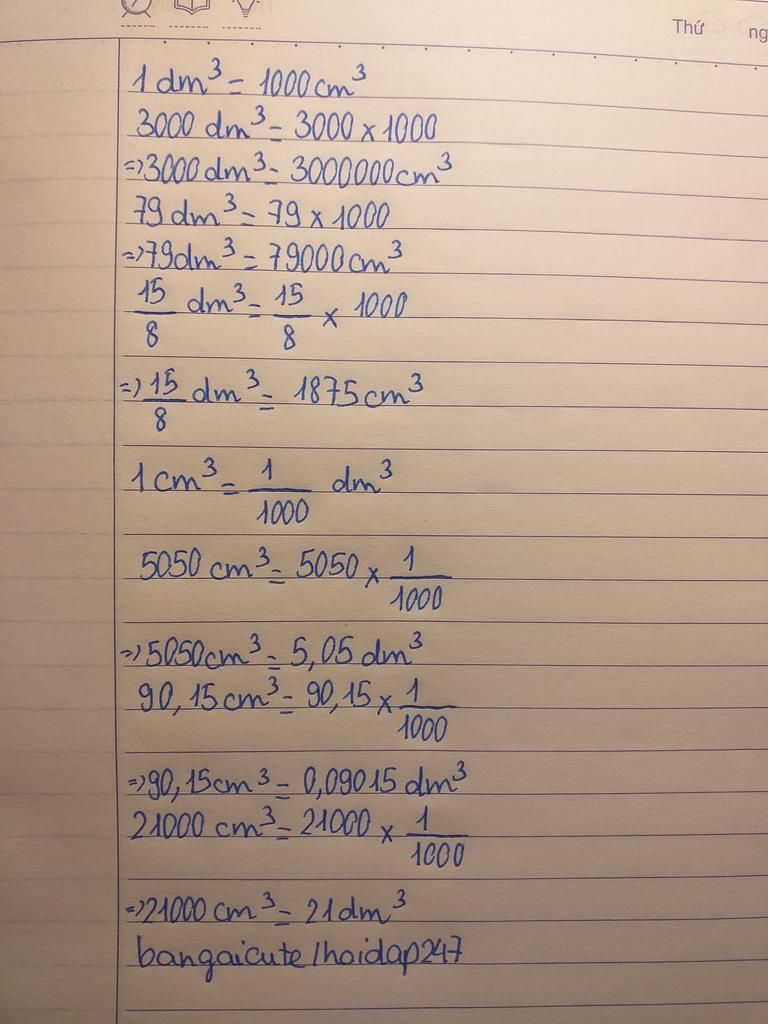 Thứ ng
1 dm³ = 1000 cm³
3000 dm³ = 3000 x 1000
=> 3000 dm³ = 3000000 cm³
79 dm³ = 79 x 1000
=> 79 dm³ = 79000 cm³
15/8 dm³ = 15/8 x 1000
=> 15/8 dm³ = 1875 cm³
1 cm³ = 1/1000 dm³
5050 cm³ = 5050 x 1/1000
=> 5050 cm³ = 5,05 dm³
90,15 cm³ = 90,15 x 1/1000
=> 90,15 cm³ = 0,09015 dm³
21000 cm³ = 21000 x 1/1000
=> 21000 cm³ = 21 dm³
bangaicute/hoidap247